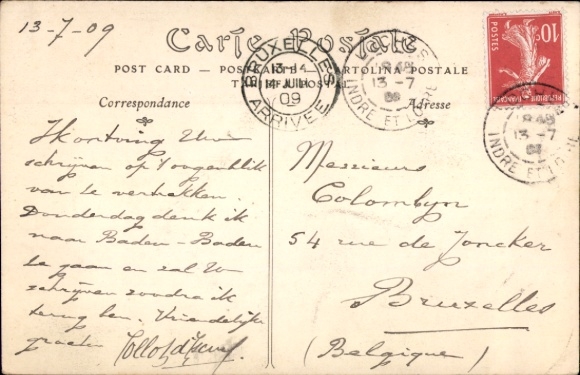 13-7-09
Carte Postale
POST CARD — POSTKARTE — CARTOLINA POSTALE
BRUXELLES
13-14
14 JUIL
09
ARRIVEE
18 45
13-7
09
INDRE ET LOIRE
10c
POSTES
REPUBLIQUE FRANÇAISE
18 45
13-7
INDRE ET LOIRE
Correspondance
Adresse
Ik ontving Uw
schrijven op 't oogenblik
van te vertrekken.
Donderdag denk ik
naar Baden-Baden
te gaan en zal U
schrijven zoodra ik
terug ben. Vriendelijke
groeten
Messieurs
Colombyn
54 rue de Joncker
Bruxelles
(Belgique)